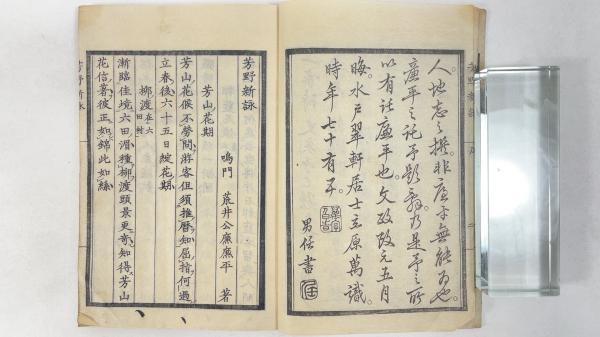 人地志之撰。非廉平無能為也。
廉平之託予題敘。乃是予之所
以有託廉平也。文政改元五月
晦。水戶翠軒居士立原萬識。
時年七十有五。
男任書
芳野新詠
鳴門 荒井公廉廉平 著
芳山花期
芳山花候不勞問將客但須推曆知屈指何過
立春後六十五日綻花期
柳渡 在六田村
漸臨佳境六田湄種柳渡頭景更奇知得芳山
花信着彼正如錦此如絲
芳野新詠